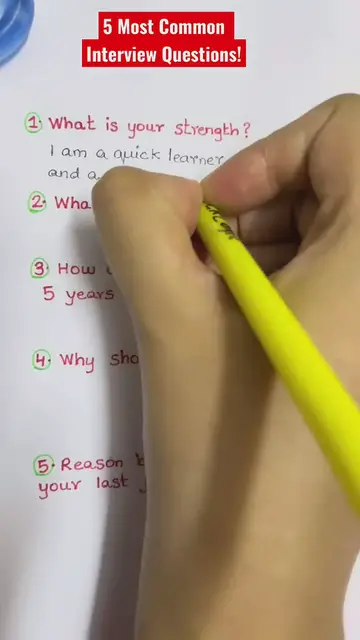 5 Most Common
Interview Questions!
1. What is your strength?
I am a quick learner
and a
2. Wha
3. How
5 years
4. Why sho
5. Reason
your last